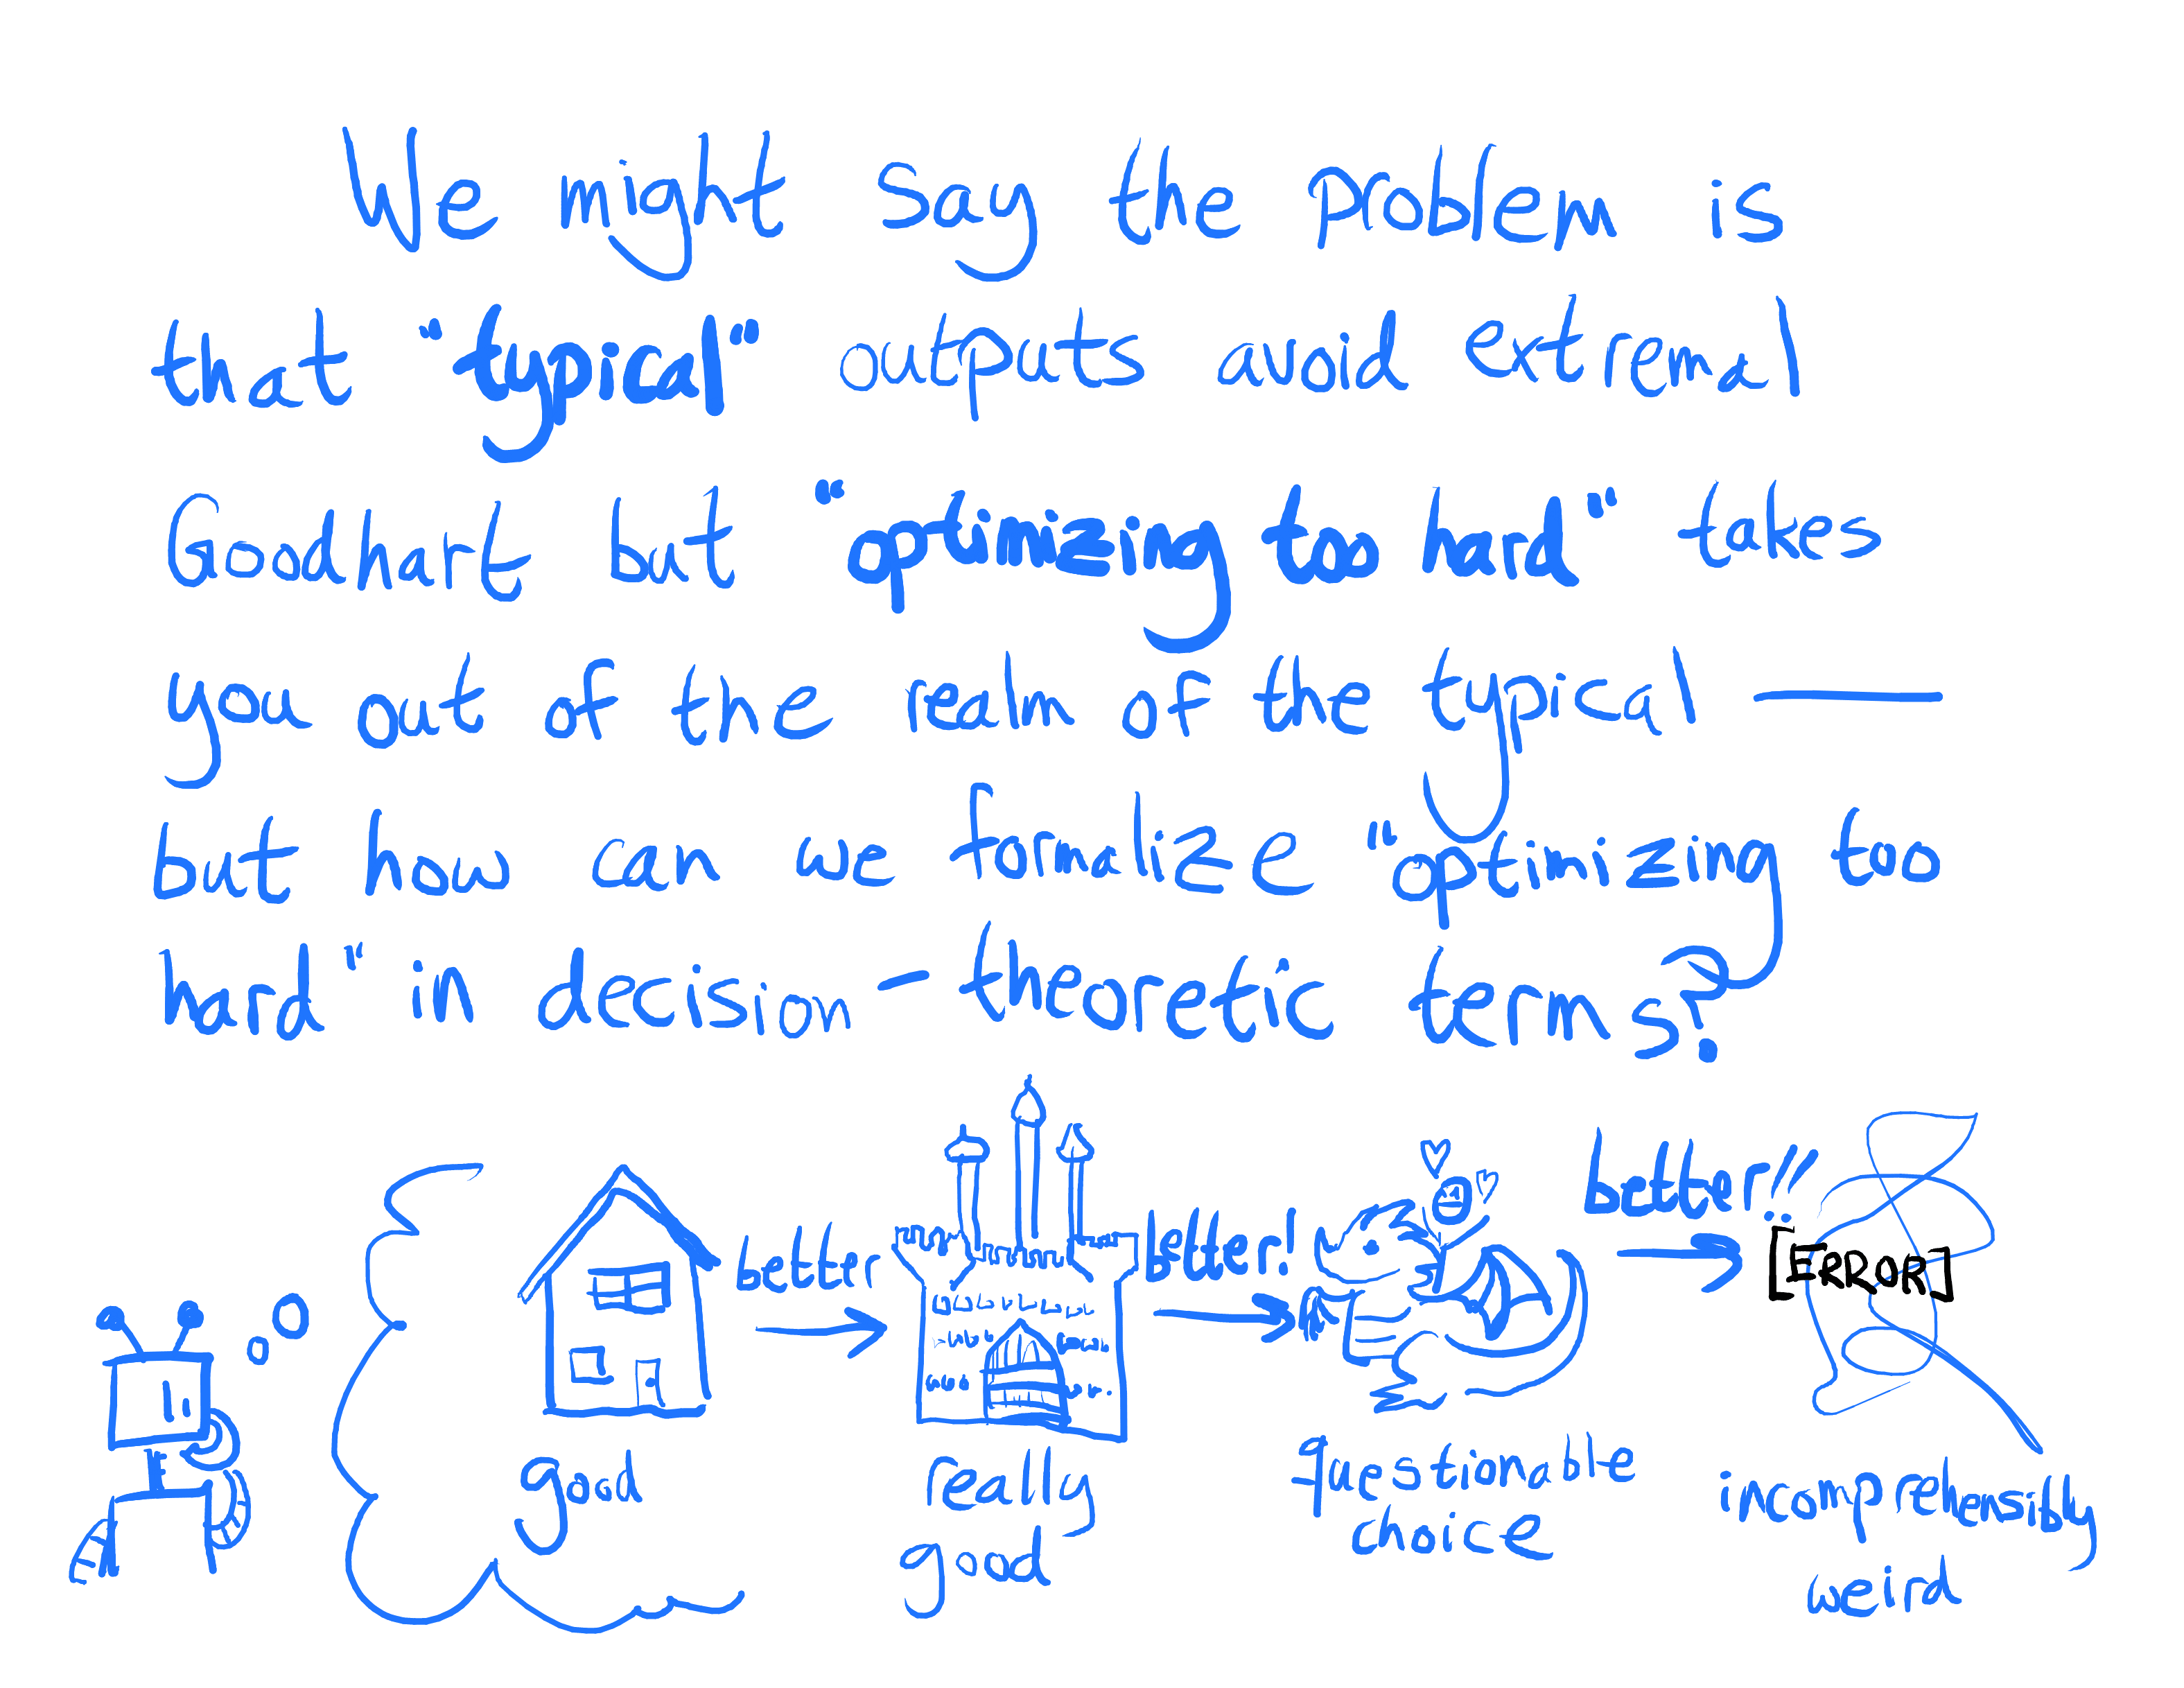 We might say the problem is
that "typical" outputs avoid extremal
Goodhart, but "optimizing too hard" takes
you out of the realm of the typical —
but how can we formalize "optimizing too
hard" in decision-theoretic terms?
better
better!
better!!
[ERROR]
good
really
good
questionable
choice
incomprehensibly
weird